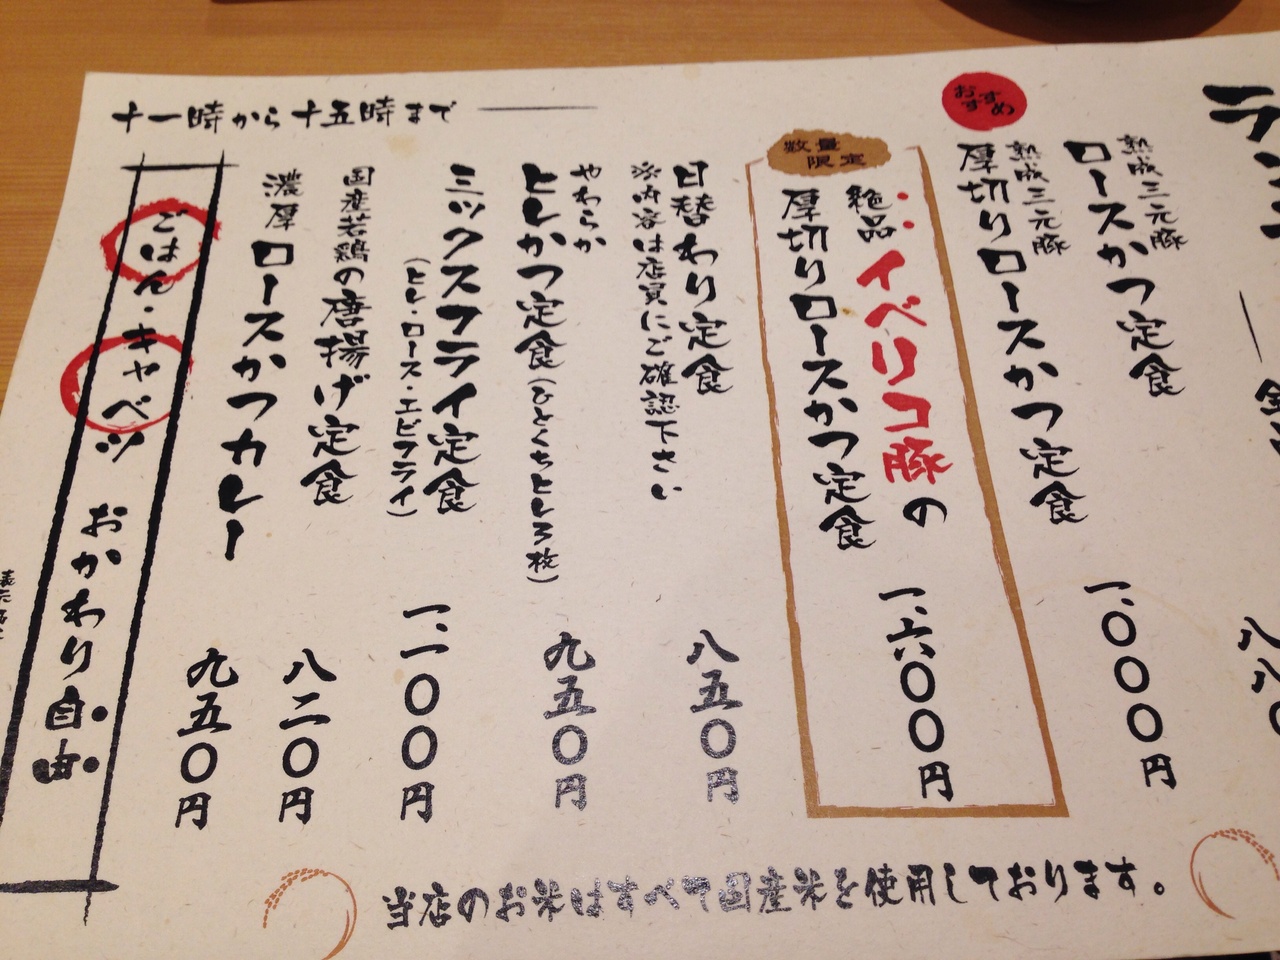 熟成三元豚
ロースかつ定食
おすすめ
熟成三元豚
厚切りロースかつ定食 一、〇〇〇円
数量限定
絶品イベリコ豚の
厚切りロースかつ定食 一、六〇〇円
日替わり定食 八五〇円
※内容は店員にご確認下さい
やわらか
ヒレかつ定食(ひとくちヒレ3枚) 九五〇円
ミックスフライ定食 一、一〇〇円
(ヒレ・ロース・エビフライ)
国産若鶏の唐揚げ定食 八二〇円
濃厚ロースかつカレー 九五〇円
十一時から十五時まで
ごはん・キャベツ おかわり自由
当店のお米はすべて国産米を使用しております。